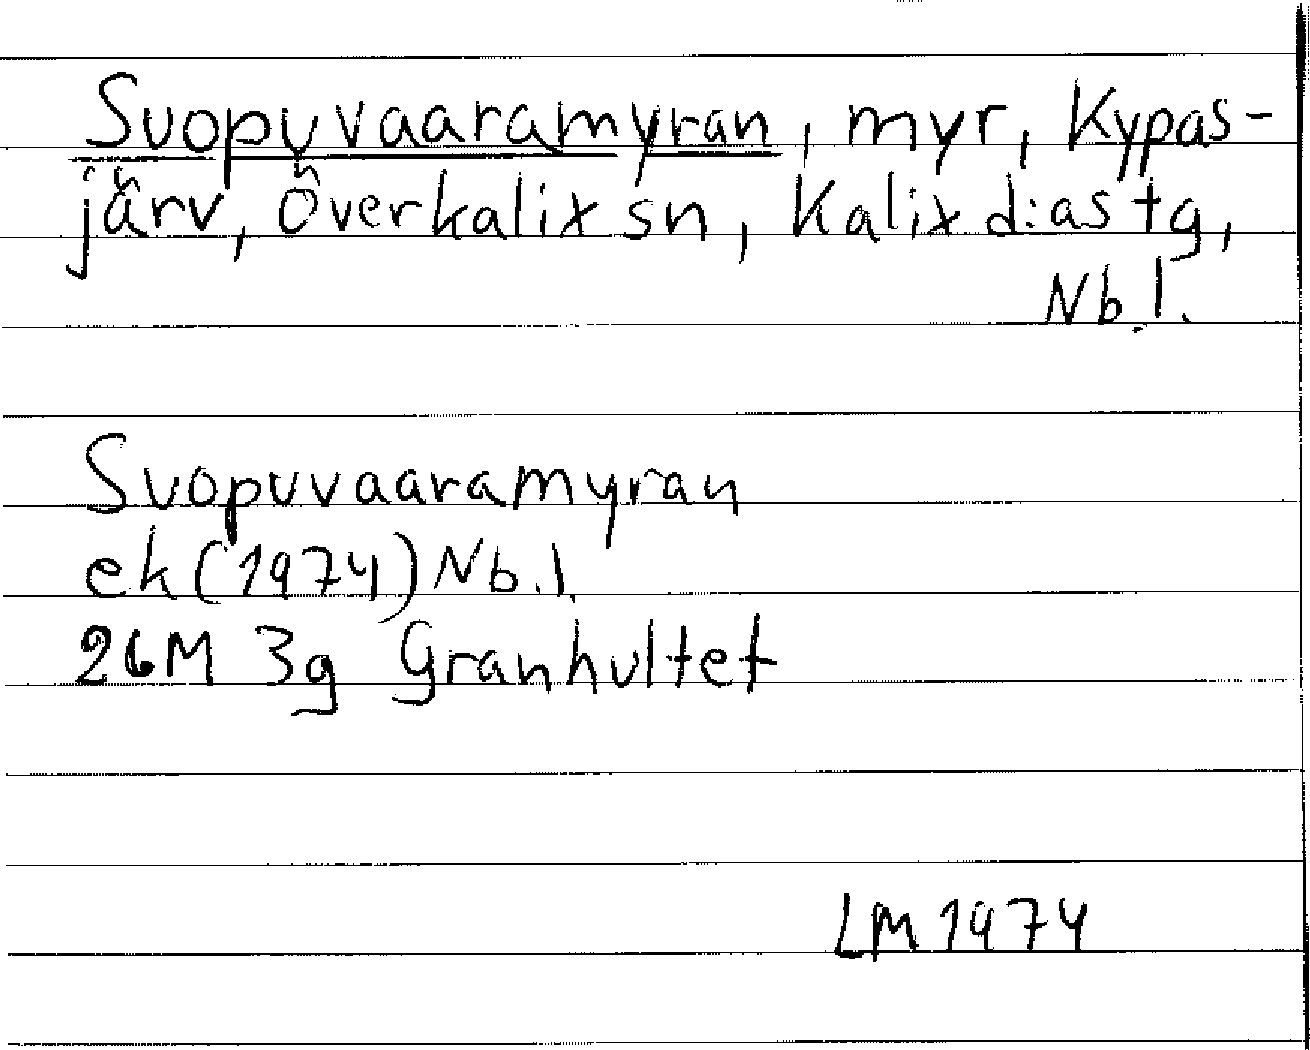 Suopuvaaramyran, myr, Kypas-
järv, Överkalix sn, Kalix d:as tg,
Nb.l.
Suopuvaaramyran
ek (1974) Nb.l.
26M 3g Granhultet
LM 1974